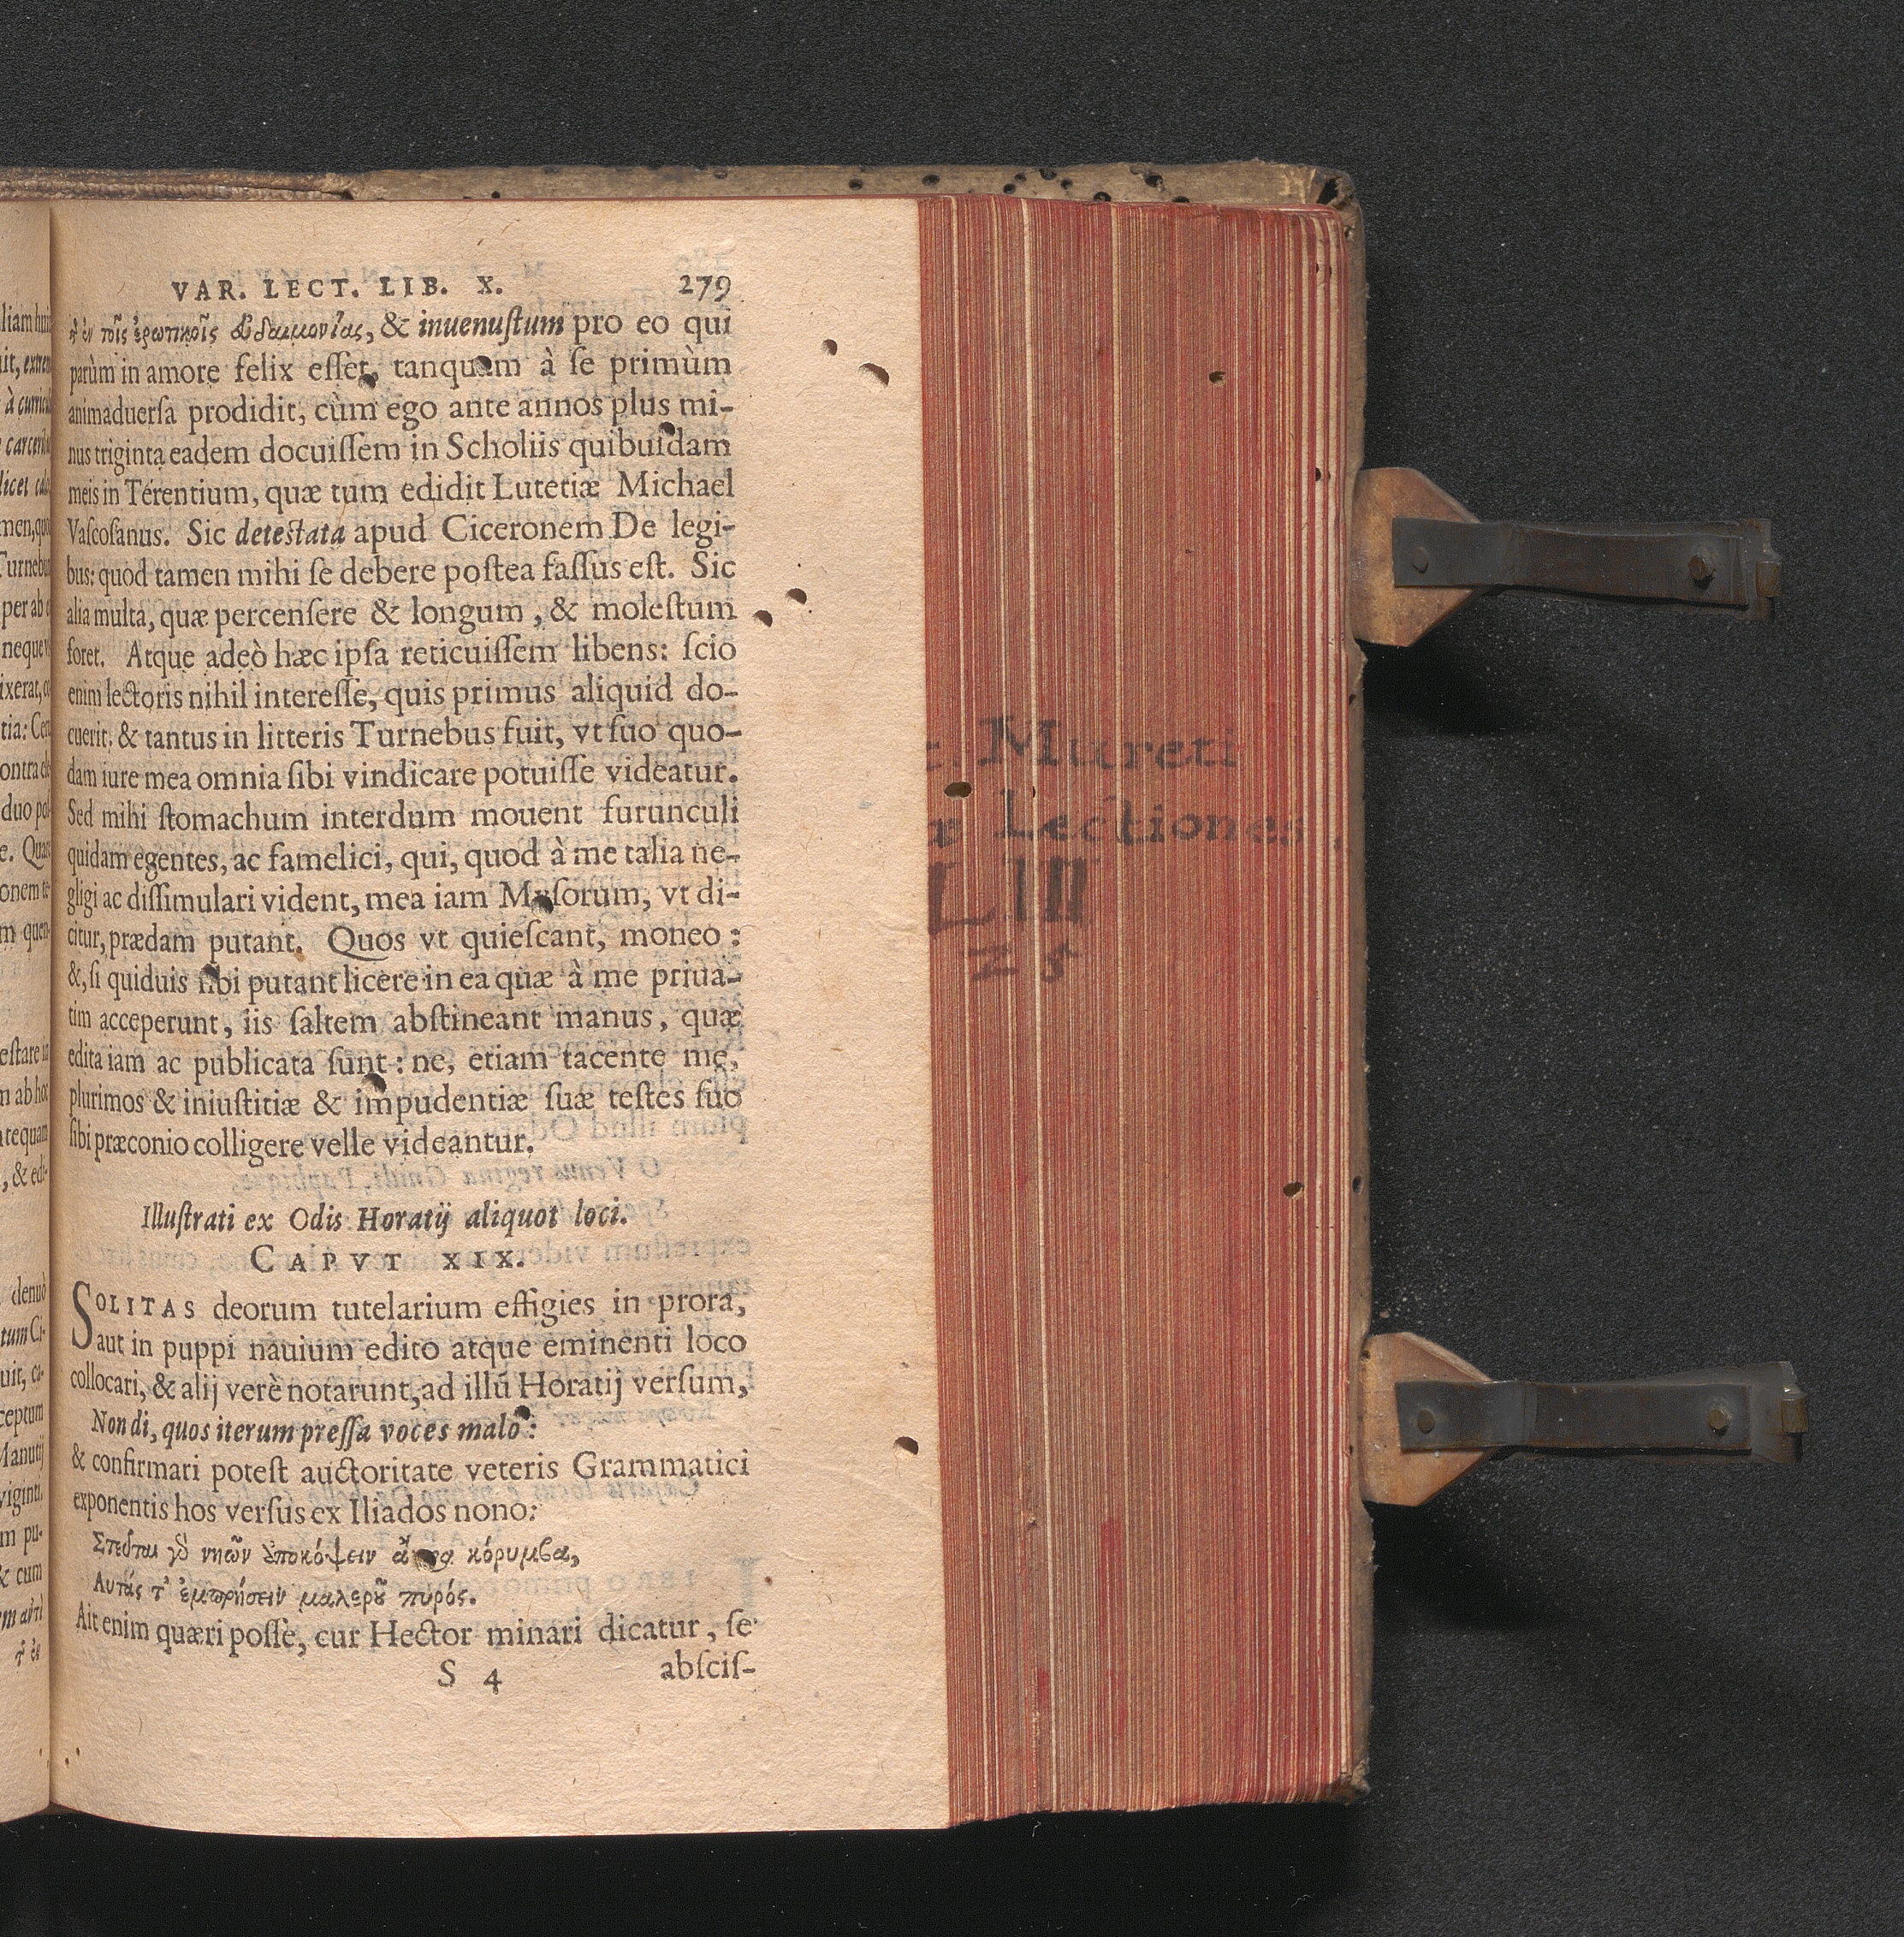 VAR. LECT. LIB. X. 279
τ̃ ἐν τοῖς ἐρωτικοῖς εὐδαιμονίας, & inuenuſtum pro eo qui
parùm in amore felix eſſet, tanquam à ſe primùm
animaduerſa prodidit, cùm ego ante annos plus mi-
nus triginta eadem docuiſſem in Scholiis quibuſdam
meis in Terentium, quæ tum edidit Lutetiæ Michael
Vaſcoſanus. Sic deteſtata apud Ciceronem De legi-
bus: quod tamen mihi ſe debere poſtea faſſus eſt. Sic
alia multa, quæ percenſere & longum, & moleſtum
foret. Atque adeò hæc ipſa reticuiſſem libens: ſcio
enim lectoris nihil intereſſe, quis primus aliquid do-
cuerit, & tantus in litteris Turnebus fuit, vt ſuo quo-
dam iure mea omnia ſibi vindicare potuiſſe videatur.
Sed mihi ſtomachum interdum mouent furunculi
quidam egentes, ac famelici, qui, quod à me talia ne-
gligi ac diſſimulari vident, mea iam Myſorum, vt di-
citur, prædam putant. Quos vt quieſcant, moneo:
&, ſi quiduis ſibi putant licere in ea quæ à me priua-
tim acceperunt, iis ſaltem abſtineant manus, quæ
edita iam ac publicata ſunt: ne, etiam tacente me,
plurimos & iniuſtitiæ & impudentiæ ſuæ teſtes ſuo
ſibi præconio colligere velle videantur.
Illuſtrati ex Odis Horatij aliquot loci.
CAPVT XIX.
SOLITAS deorum tutelarium effigies in prora,
aut in puppi nauium edito atque eminenti loco
collocari, & alij verè notarunt, ad illũ Horatij verſum,
Non di, quos iterum preſſa voces malo:
& confirmari poteſt auctoritate veteris Grammatici
exponentis hos verſus ex Iliados nono:
Στεῦται γὸ νηῶν ἀποκόψειν ἄκρα κόρυμβα,
Αυτάς τ' ἐμπρήσειν μαλεροῦ πυρός.
Ait enim quæri poſſe, cur Hector minari dicatur, ſe
S 4 abſciſ-
Mureti
Lectiones
LIII
25